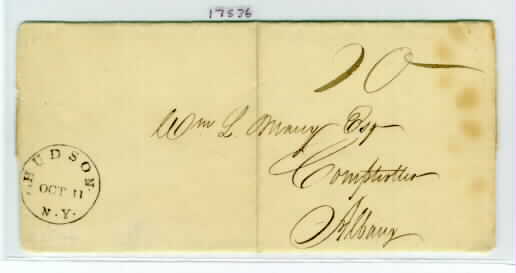 17536
10
Wm L Marcy Esq
Comptroller
Albany
HUDSON.
OCT 11
N.Y.